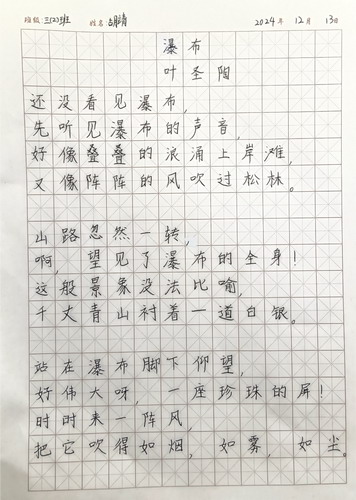 班级 三(2)班 姓名 胡睛 2024年 12月 13日
瀑布
叶圣陶
还没看见瀑布,
先听见瀑布的声音,
好像叠叠的浪涌上岸滩,
又像阵阵的风吹过松林。
山路忽然一转,
啊, 望见了瀑布的全身!
这般景象没法比喻,
千丈青山衬着一道白银。
站在瀑布脚下仰望,
好伟大呀, 一座珍珠的屏!
时时来一阵风,
把它吹得如烟, 如雾, 如尘。